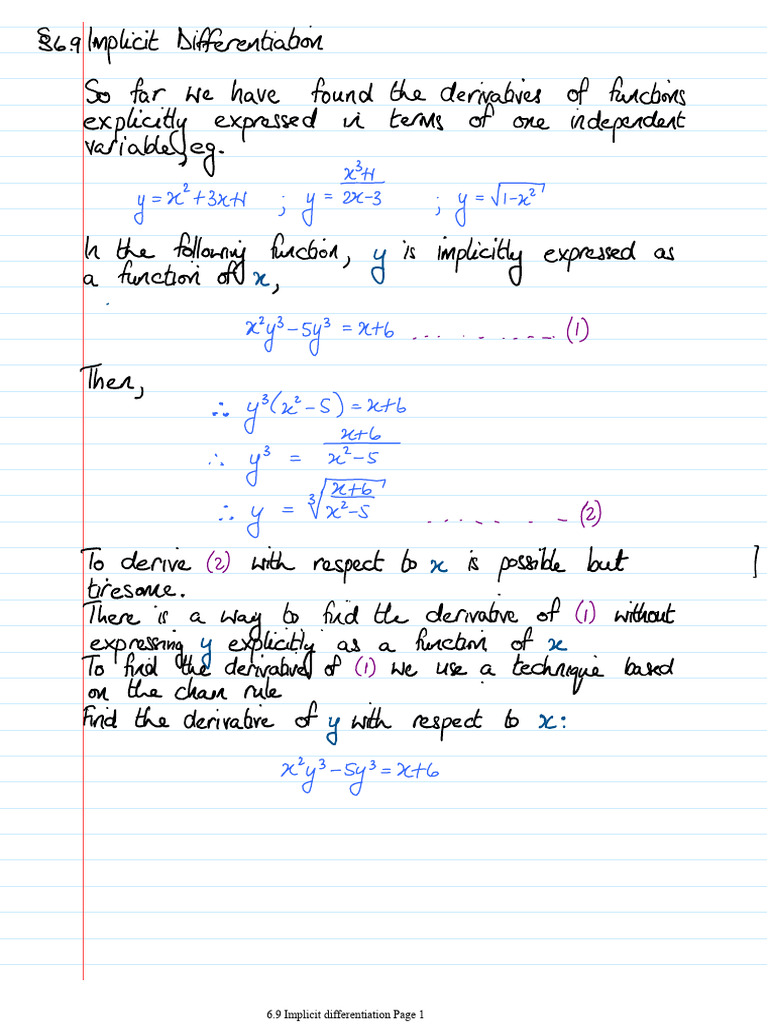 §6.9 Implicit Differentiation
So far we have found the derivatives of functions
explicitly expressed in terms of one independent
variable, eg.
y = x²+3x+1 ; y = (x³+1)/(2x-3) ; y = √(1-x²)
In the following function, y is implicitly expressed as
a function of x,
x²y³ - 5y³ = x+6 ............ (1)
Then,
∴ y³(x² - 5) = x+6
∴ y³ = (x+6)/(x²-5)
∴ y = ∛((x+6)/(x²-5)) ............ (2)
To derive (2) with respect to x is possible but
tiresome.
There is a way to find the derivative of (1) without
expressing y explicitly as a function of x
To find the derivatives of (1) we use a technique based
on the chain rule
Find the derivative of y with respect to x:
x²y³ - 5y³ = x+6
6.9 Implicit differentiation Page 1